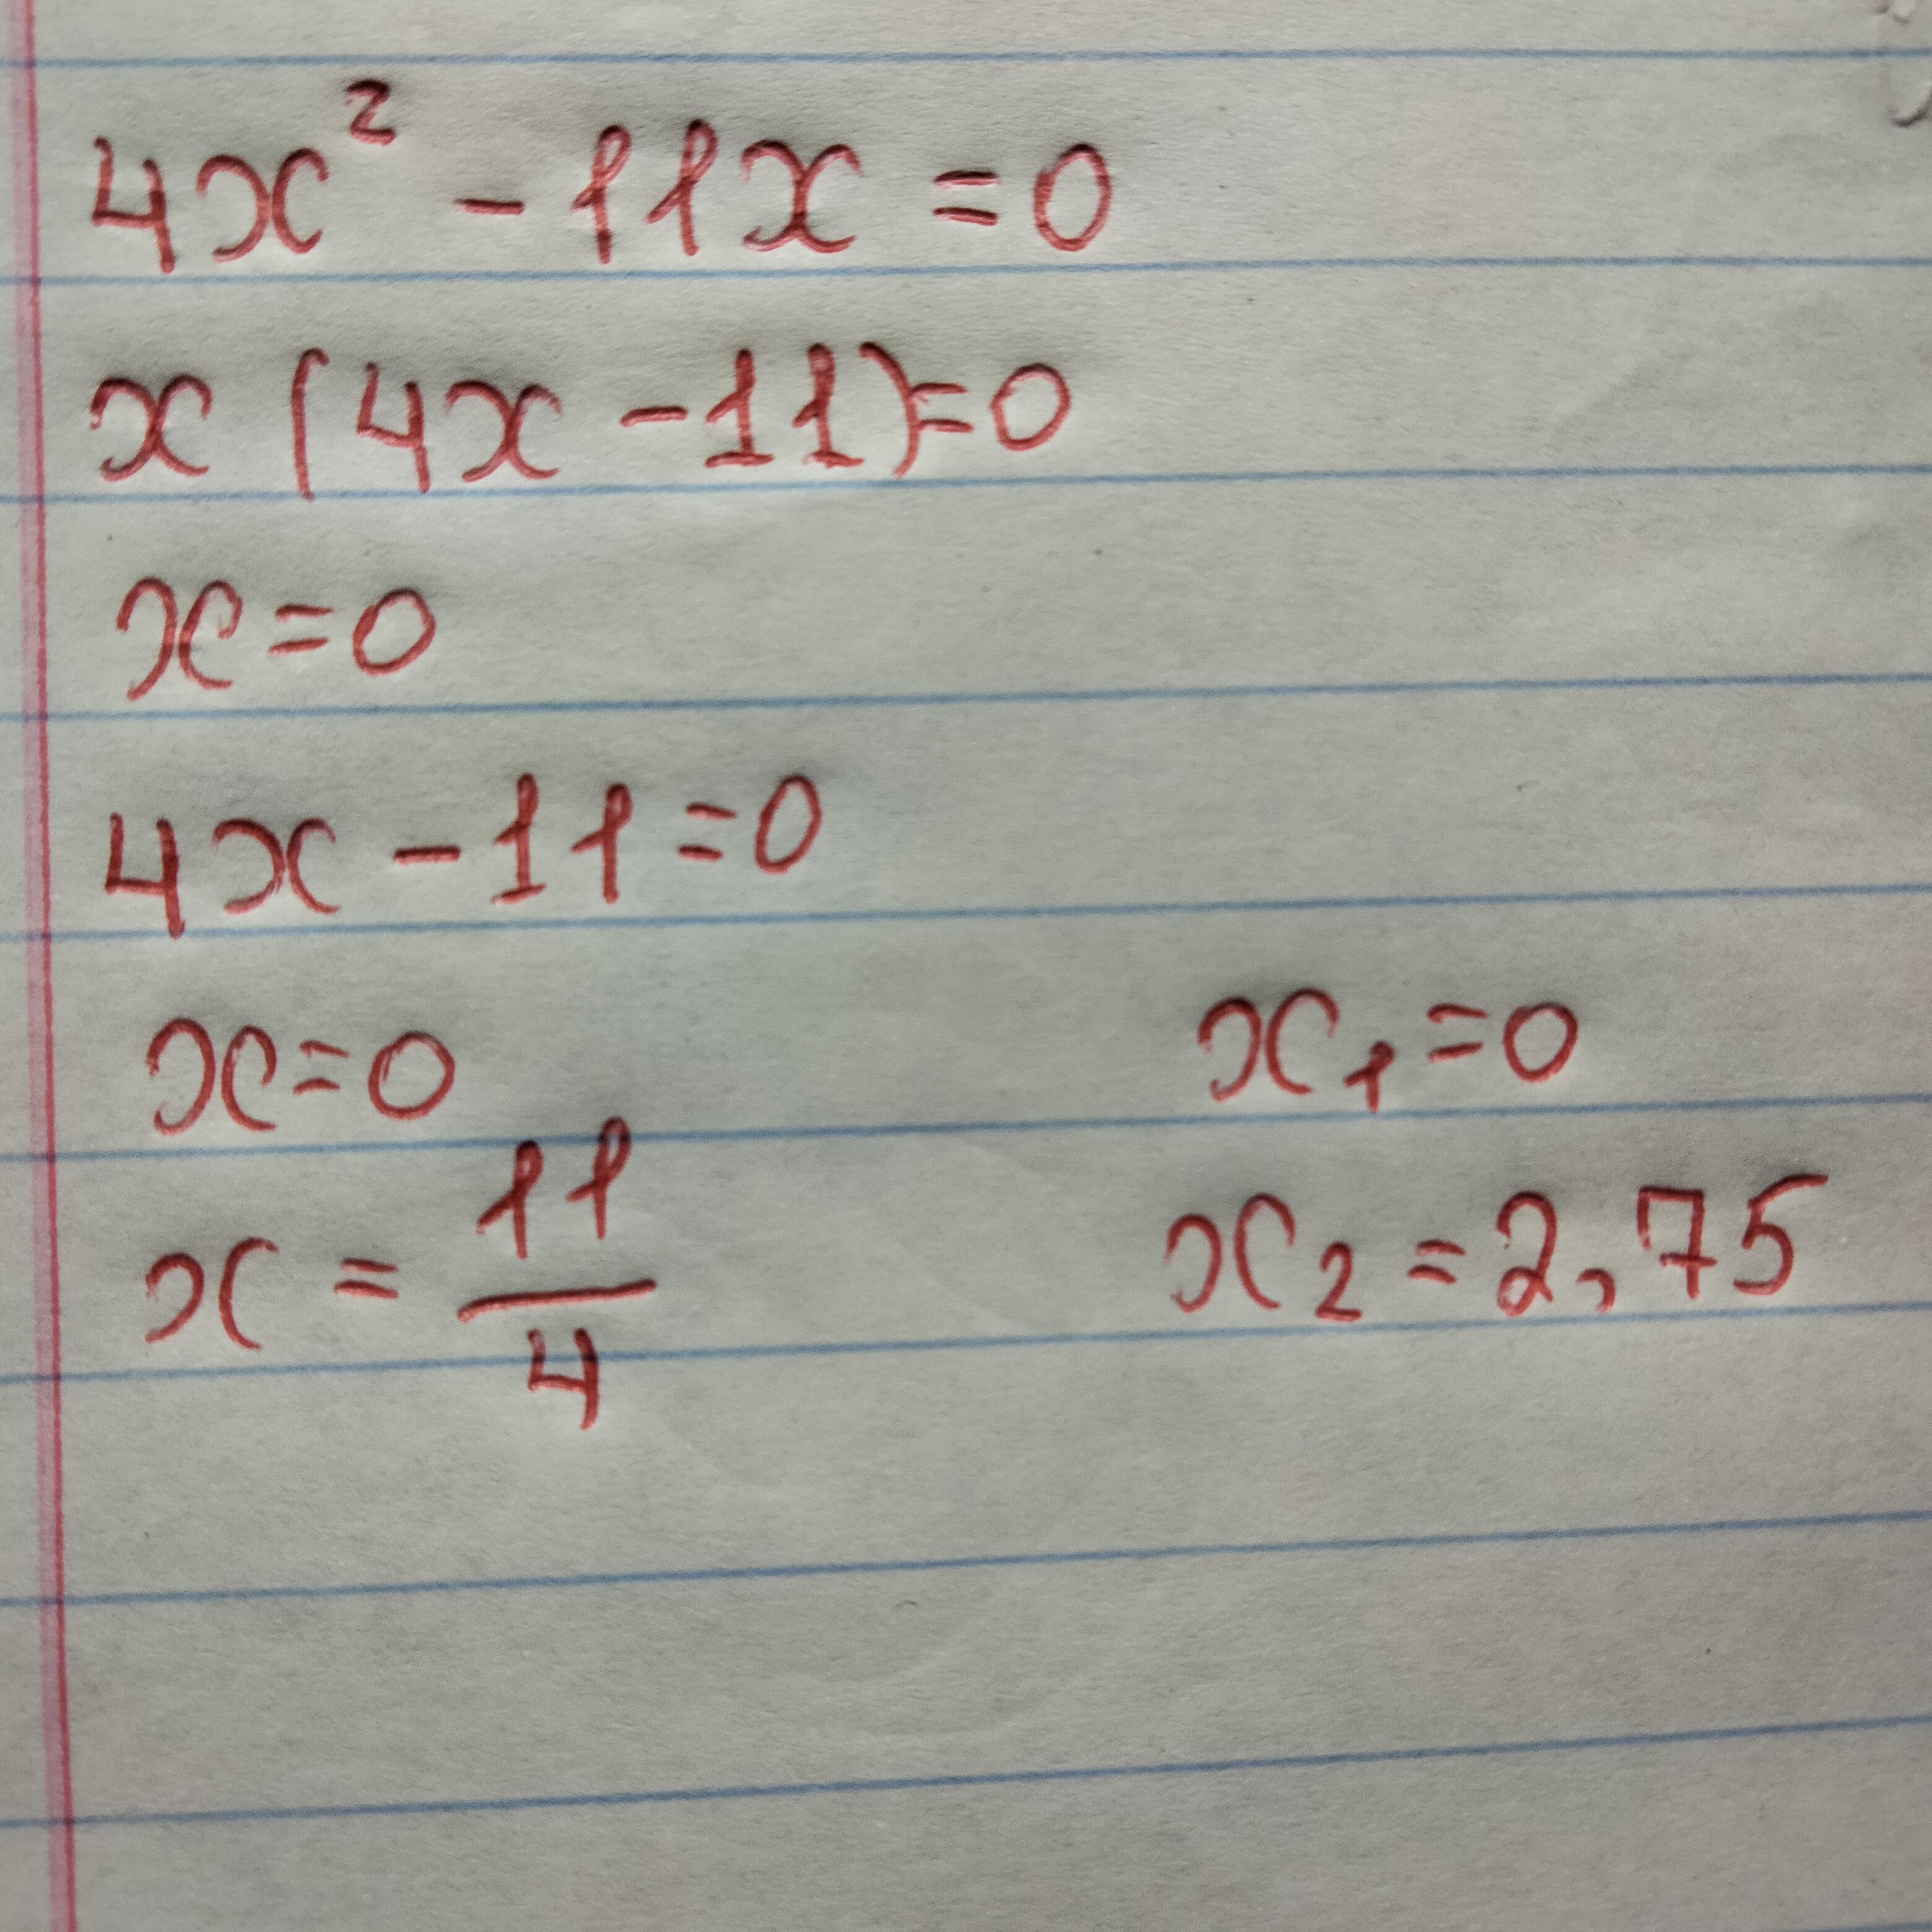 4x² - 11x = 0
x (4x - 11) = 0
x = 0
4x - 11 = 0
x = 0
x₁ = 0
x = 11/4
x₂ = 2,75